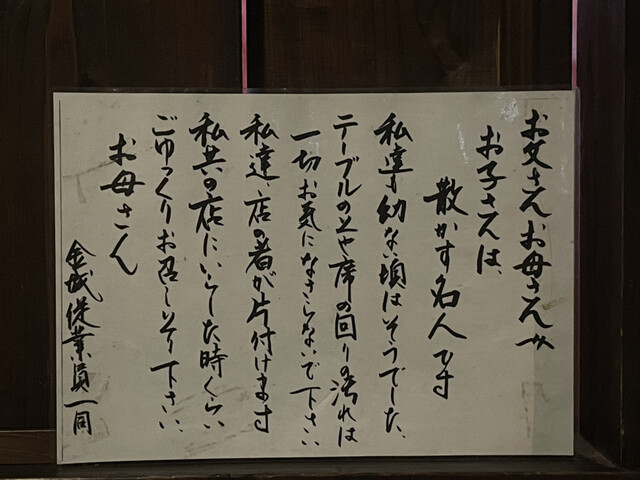 お父さんお母さんへ
お子さんは、
散かす名人です
私達も幼ない頃はそうでした、
テーブルの上や席の回りの汚れは
一切お気になさらないで下さい
私達、店の者が片付けます
私共の店にいらした時くらい
ごゆっくりお召し上り下さい、
お母さん
金城従業員一同